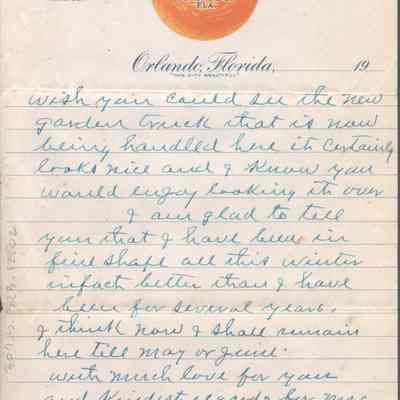 FLA.
Orlando, Florida, 19
"THE CITY BEAUTIFUL"
wish you could see the new
garden truck that is now
being handled here it certainly
looks nice and I know you
would enjoy looking it over
I am glad to tell
you that I have been in
fine shape all this winter
infact better than I have
been for several years.
I think now I shall remain
here till May or June.
with much love for you
and kindest regards for